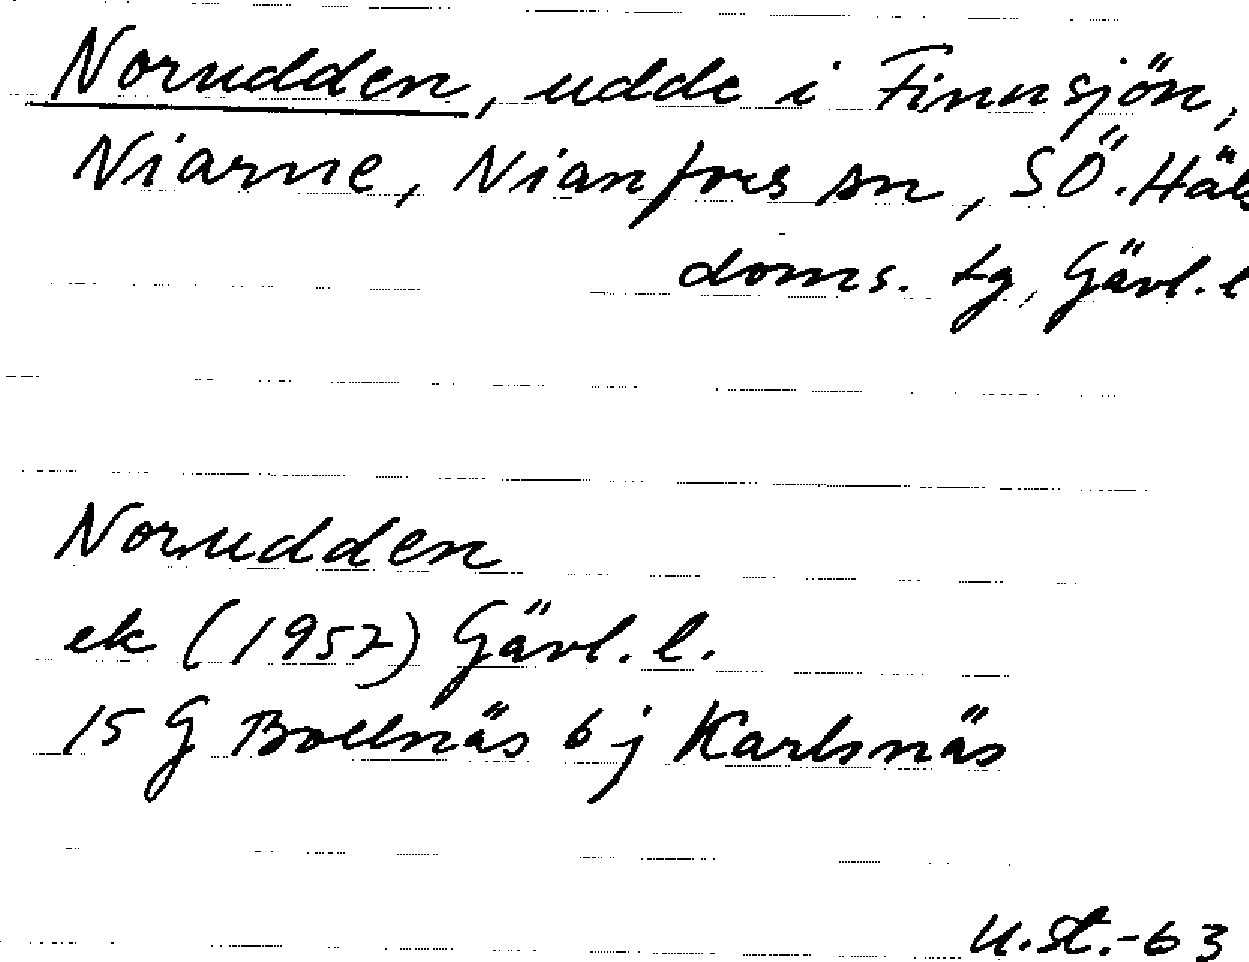 Norudden, udde i Finnsjön,
Niarne, Nianfors sn, SÖ. Häls
doms. tg, Gävl. l
Norudden
ek (1952) Gävl. l.
15 G Bollnäs 6 j Karlsnäs
U.St.-63